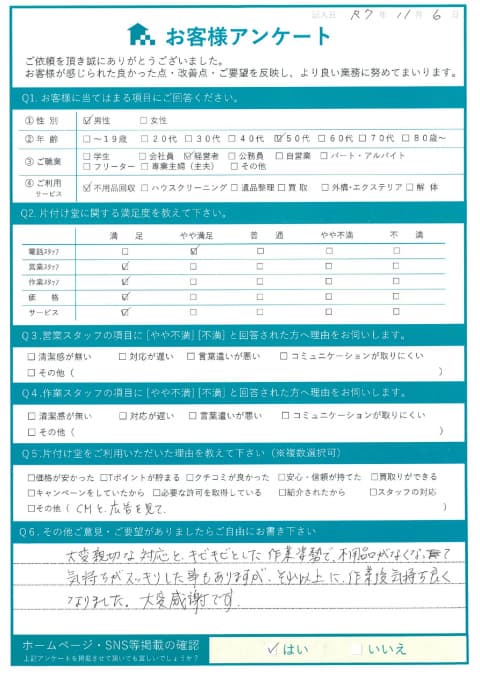 記入日 R7 年 11 月 6 日
お客様アンケート
ご依頼を頂き誠にありがとうございました。
お客様が感じられた良かった点・改善点・ご要望を反映し、より良い業務に努めてまいります。
Q1. お客様に当てはまる項目にご回答ください。
①性 別 ☑男性 □女性
②年 齢 □〜19歳 □20代 □30代 □40代 ☑50代 □60代 □70代 □80歳〜
③ご職業 □学生 □会社員 ☑経営者 □公務員 □自営業 □パート・アルバイト
□フリーター □専業主婦（主夫） □その他
④ご利用サービス ☑不用品回収 □ハウスクリーニング □遺品整理 □買取 □外構・エクステリア □解体
Q2. 片付け堂に関する満足度を教えて下さい。
満足 やや満足 普通 やや不満 不満
電話スタッフ □ ☑ □ □ □
営業スタッフ ☑ □ □ □ □
作業スタッフ ☑ □ □ □ □
価格 ☑ □ □ □ □
サービス ☑ □ □ □ □
Q3. 営業スタッフの項目に［やや不満］［不満］と回答された方へ理由をお伺いします。
□清潔感が無い □対応が遅い □言葉遣いが悪い □コミュニケーションが取りにくい
□その他（ ）
Q4. 作業スタッフの項目に［やや不満］［不満］と回答された方へ理由をお伺いします。
□清潔感が無い □対応が遅い □言葉遣いが悪い □コミュニケーションが取りにくい
□その他（ ）
Q5. 片付け堂をご利用いただいた理由を教えて下さい（※複数選択可）
□価格が安かった □Tポイントが貯まる □クチコミが良かった □安心・信頼が持てた □買取りができる
□キャンペーンをしていたから □必要な許可を取得している □紹介されたから □スタッフの対応
□その他（ CMと、広告を見て.
Q6. その他ご意見・ご要望がありましたらご自由にお書き下さい
大変親切な対応と、キビキビとした作業姿勢で、不用品がなくなって
気持ちがスッキリした事もありますが、それ以上に、作業後気持ち良く
なりました。大変感謝です.
ホームページ・SNS等掲載の確認
上記アンケートを掲載させて頂いても宜しいでしょうか？
☑はい □いいえ